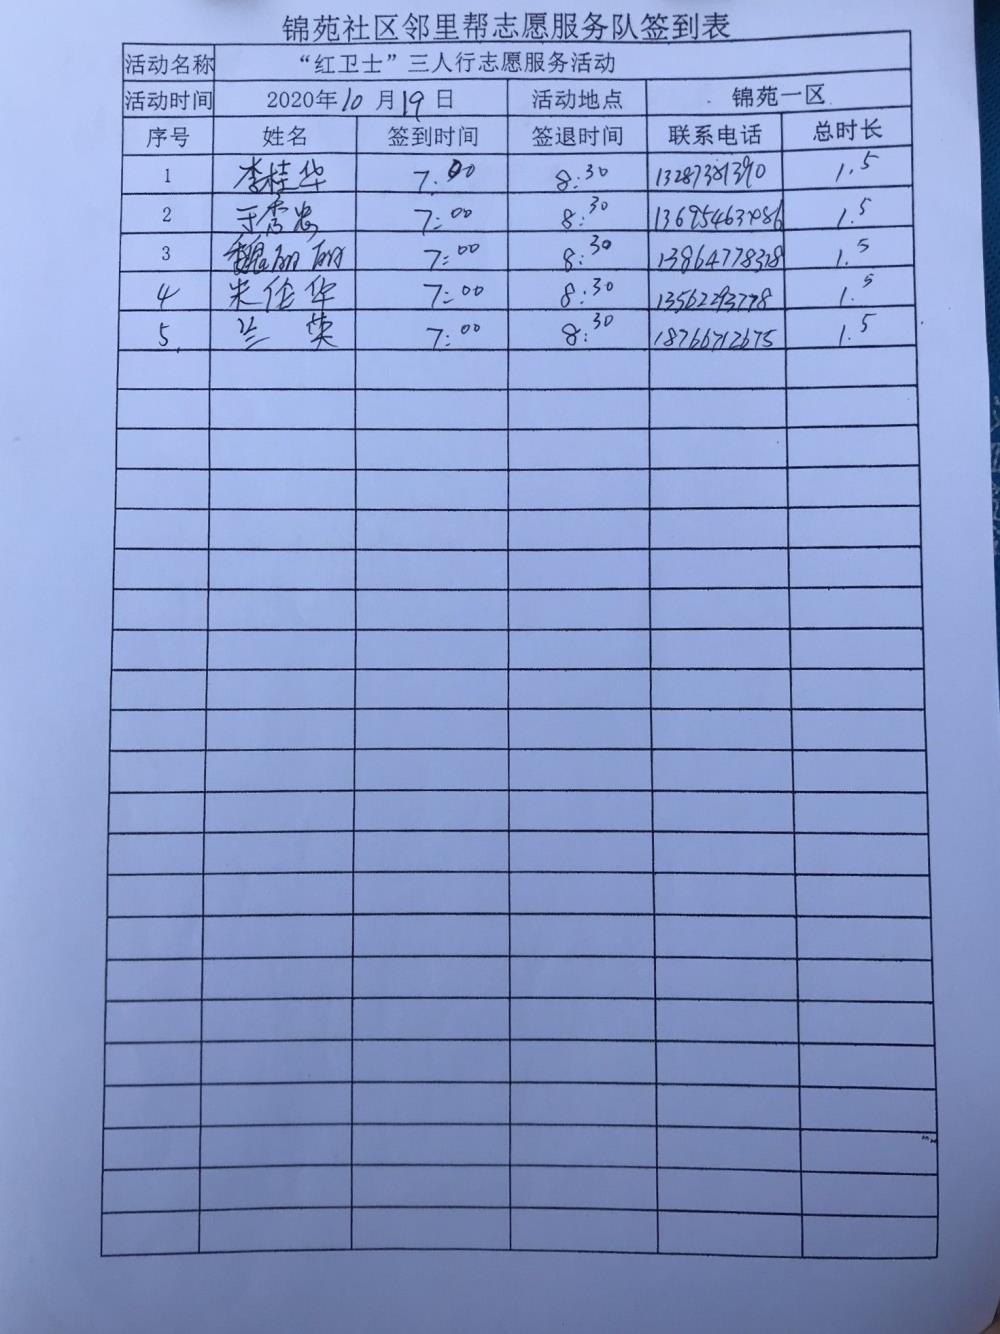 锦苑社区邻里帮志愿服务队签到表
活动名称 “红卫士”三人行志愿服务活动
活动时间 2020年10月19日 活动地点 锦苑一区
序号 姓名 签到时间 签退时间 联系电话 总时长
1 李桂华 7:00 8:30 13287381390 1.5
2 于秀 7:00 8:30 1.5
3 魏丽丽 7:00 8:30 13864778318 1.5
4 朱佳华 7:00 8:30 1.5
5 兰英 7:00 8:30 18766712675 1.5